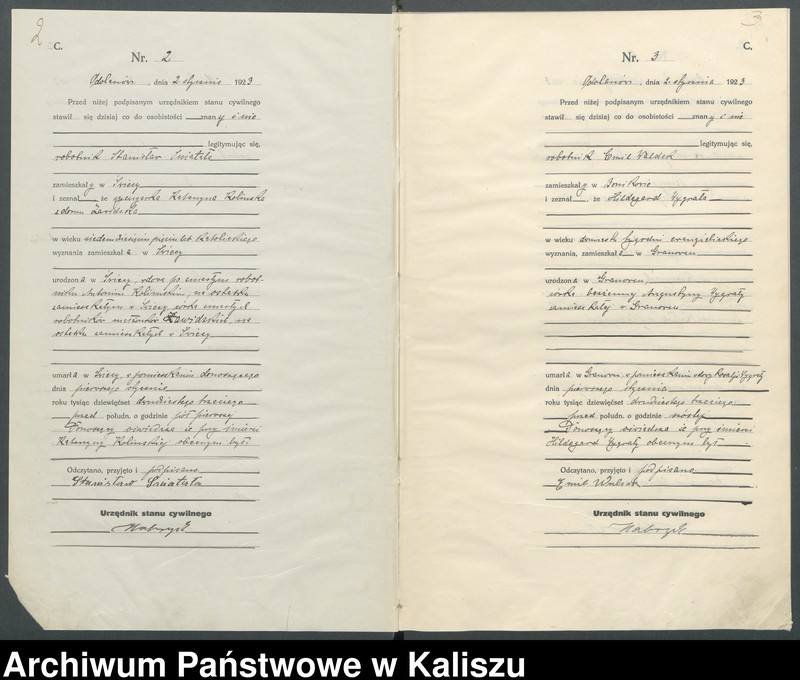 2
C.
Nr. 2
dnia 2 stycznia 1923
Przed niżej podpisanym urzędnikiem stanu cywilnego
stawił się dzisiaj co do osobistości znany i nie
legitymując się,
robotnik Stanisław Świtała
zamieszkały w
i zeznał, że Katarzyna Kolinska
z domu
w wieku siedemdziesięciu pięciu lat katolickiego
wyznania zamieszkała w
urodzona w wdowa po zmarłym robot-
niku Antonim Kolinskim, na ostatku
zamieszkałym w córka zmarłych
robotników małżonków na
ostatku zamieszkałych w
umarła w w pomieszkaniu donoszącego
dnia pierwszego stycznia
roku tysiąc dziewięćset dwudziestego trzeciego
przed połudn. o godzinie pół pierwszej
Donoszący oświadcza iż przy śmierci
Katarzyny Kolinskiej obecnym był.
Odczytano, przyjęto i podpisano
Stanisław Świtała
Urzędnik stanu cywilnego
3
C.
Nr. 3
dnia 2 stycznia 1923
Przed niżej podpisanym urzędnikiem stanu cywilnego
stawił się dzisiaj co do osobistości znany i nie
legitymując się,
robotnik Emil
zamieszkały w
i zeznał, że Hildegard
w wieku tygodni ewangielickiego
wyznania, zamieszkała w Granowcu
urodzona w Granowcu,
córka
zamieszkałej w Granowcu
umarła w Granowcu w pomieszkaniu wdowy
dnia pierwszego stycznia
roku tysiąc dziewięćset dwudziestego trzeciego
przed połudn. o godzinie szóstej
Donoszący oświadcza iż przy śmierci
Hildegard obecnym był
Odczytano, przyjęto i podpisano
Emil
Urzędnik stanu cywilnego
Archiwum Państwowe w Kaliszu